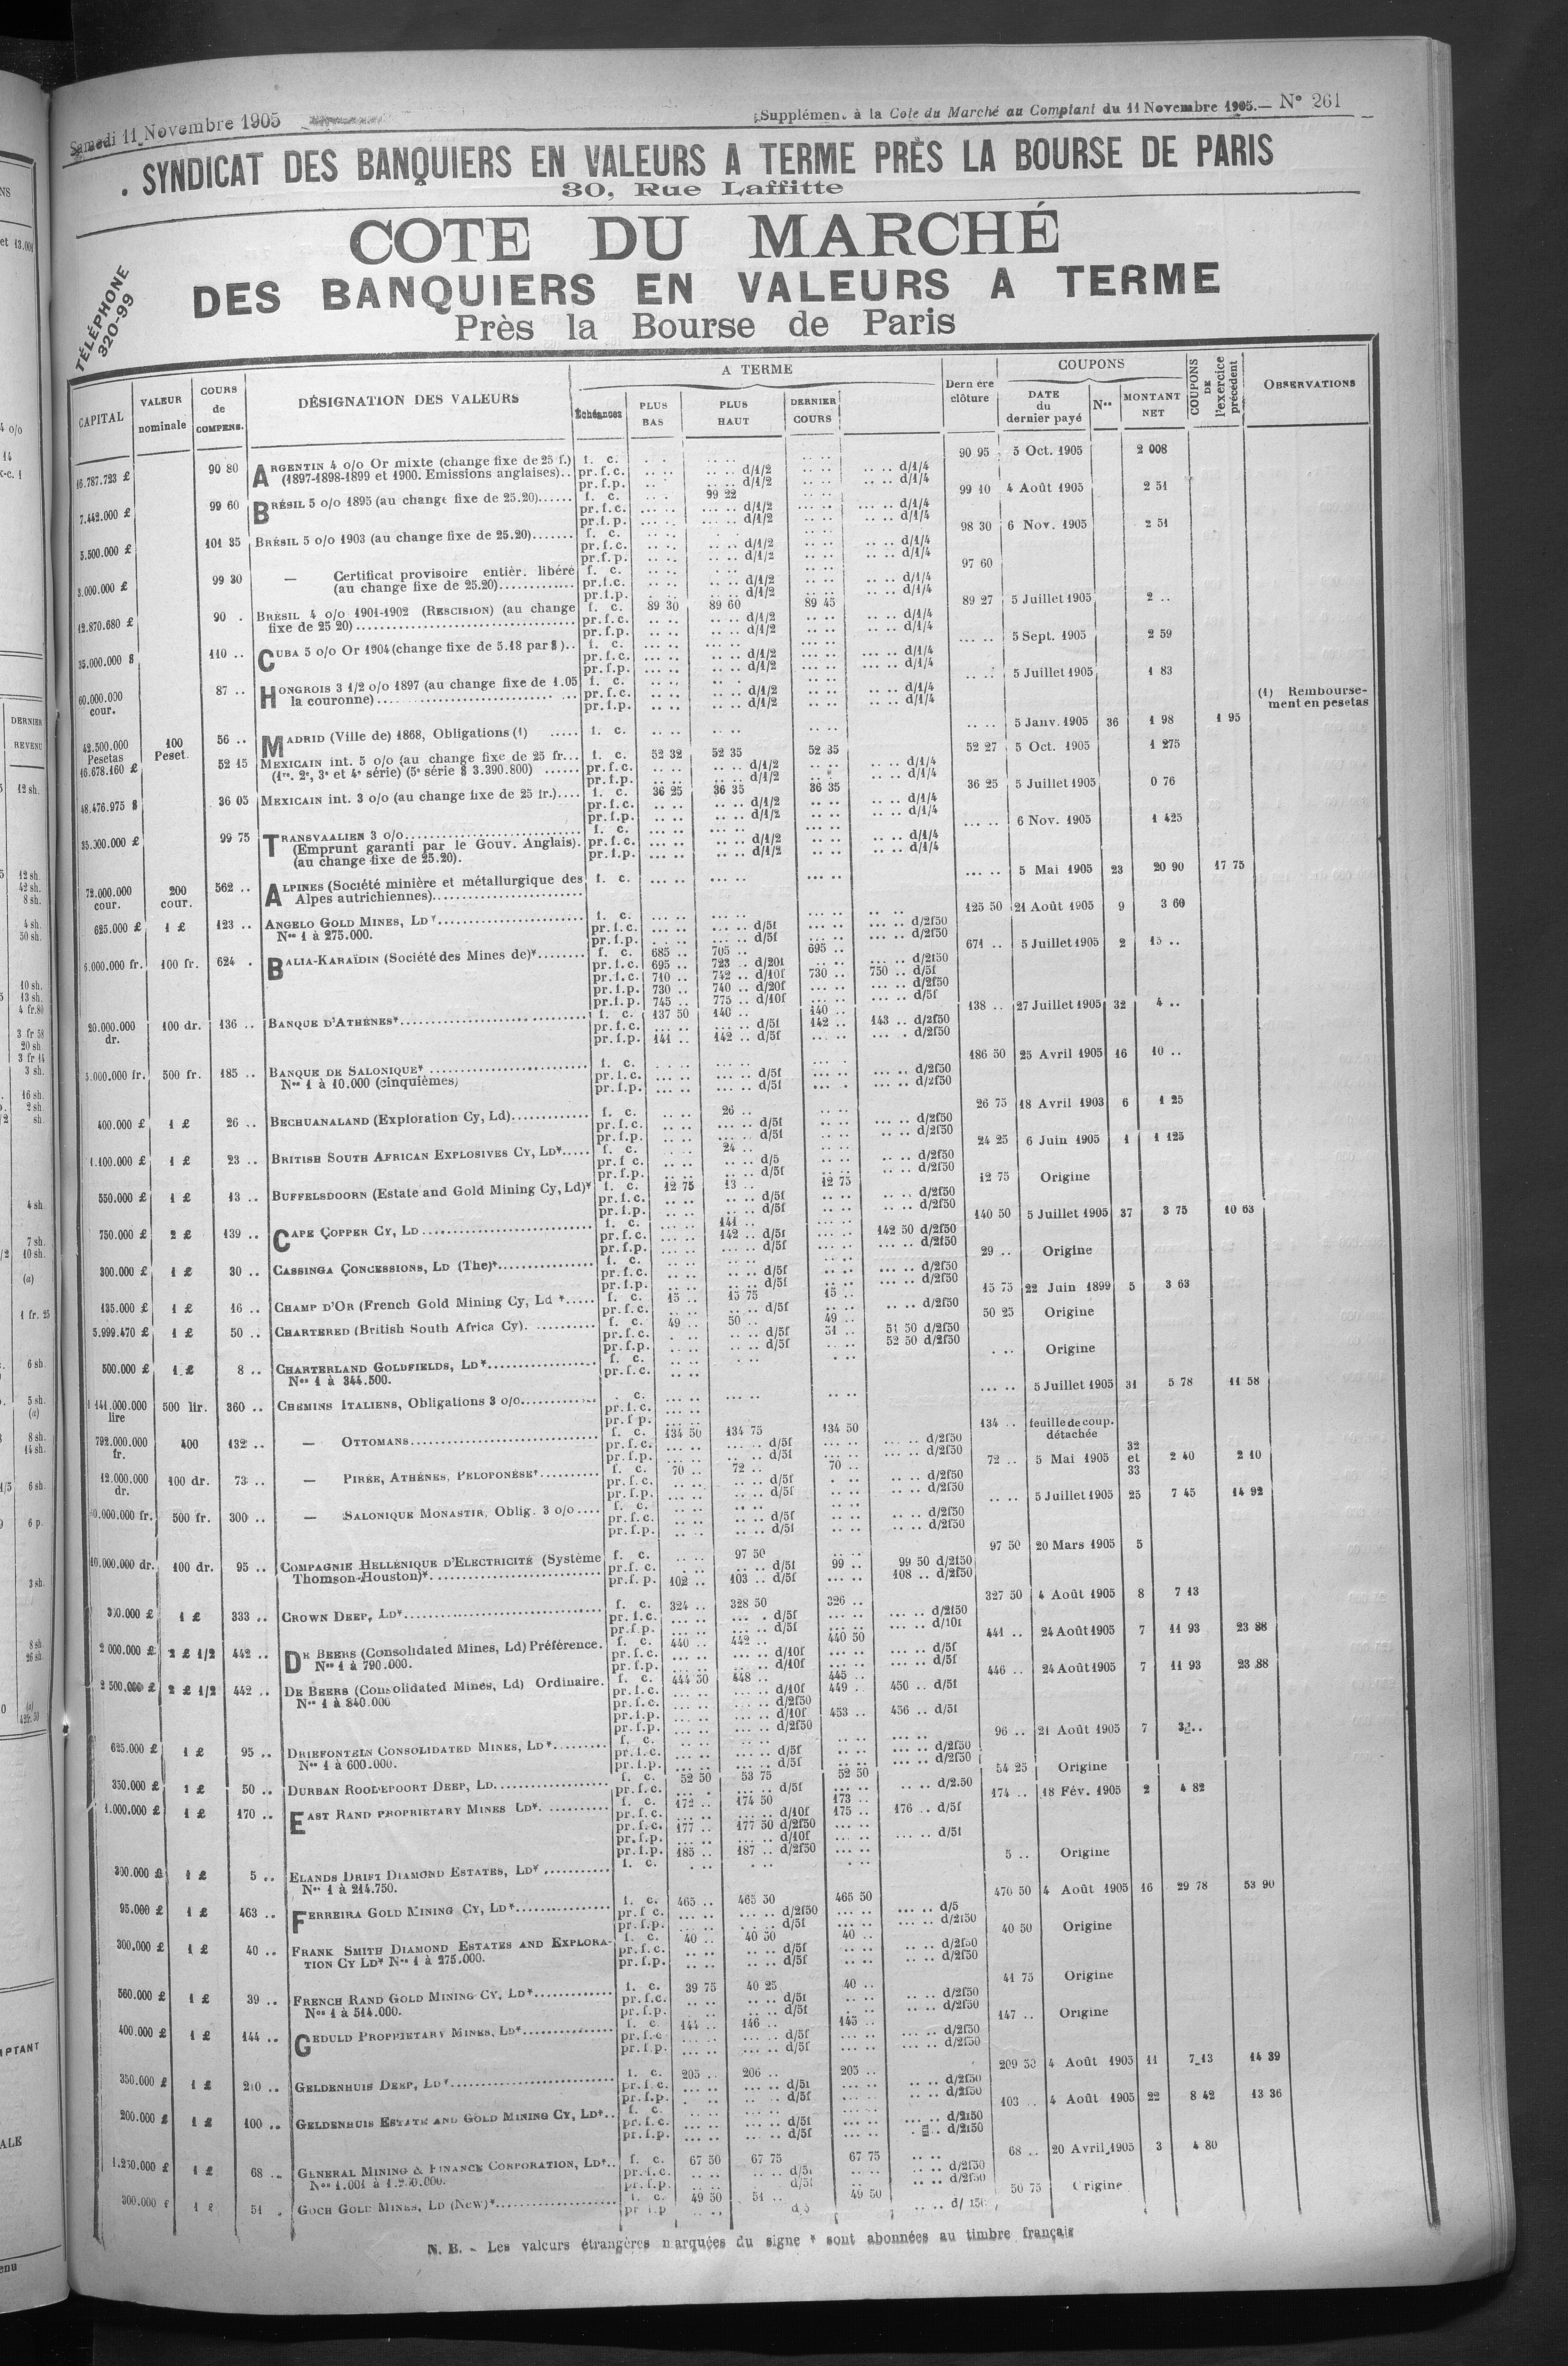 Samedi 11 Novembre 1905
Supplément à la Cote du Marché au Comptant du 11 Novembre 1905.— N° 261
SYNDICAT DES BANQUIERS EN VALEURS A TERME PRÈS LA BOURSE DE PARIS
30, Rue Laffitte
COTE DU MARCHÉ
DES BANQUIERS EN VALEURS A TERME
Près la Bourse de Paris
TÉLÉPHONE
320-99
CAPITAL VALEUR nominale COURS de COMPENS. DÉSIGNATION DES VALEURS A TERME Échéances PLUS BAS PLUS HAUT DERNIER COURS Dernière clôture COUPONS DATE du dernier payé Nos MONTANT NET COUPONS DE l'exercice précédent OBSERVATIONS
16.787.723 £ 90 80 ARGENTIN 4 o/o Or mixte (change fixe de 25 f.) f. c. 90 95 5 Oct. 1905 2 008
(1897-1898-1899 et 1900. Emissions anglaises).. pr.f.c. d/1/2 d/1/4
pr.f.p. d/1/2 d/1/4
7.442.000 £ 99 60 BRÉSIL 5 o/o 1895 (au change fixe de 25.20)...... f. c. 99 22 99 10 4 Août 1905 2 51
pr.f.c. d/1/2 d/1/4
pr.f.p. d/1/2 d/1/4
5.500.000 £ 101 35 BRÉSIL 5 o/o 1903 (au change fixe de 25.20)....... f. c. 98 30 6 Nov. 1905 2 51
pr.f.c. d/1/2 d/1/4
pr.f.p. d/1/2 d/1/4
3.000.000 £ 99 30 — Certificat provisoire entièr. libéré f. c. 97 60
(au change fixe de 25.20)............ pr.f.c. d/1/2 d/1/4
pr.f.p. d/1/2 d/1/4
12.870.680 £ 90 . BRÉSIL 4 o/o 1901-1902 (RESCISION) (au change f. c. 89 30 89 60 89 45 89 27 5 Juillet 1905 2 ..
fixe de 25 20)........ pr.f.c. d/1/2 d/1/4
pr.f.p. d/1/2 d/1/4
35.000.000 $ 110 .. CUBA 5 o/o Or 1904 (change fixe de 5.18 par $).. f. c. 5 Sept. 1905 2 59
pr.f.c. d/1/2 d/1/4
pr.f.p. d/1/2 d/1/4
60.000.000 cour. 87 .. HONGROIS 3 1/2 o/o 1897 (au change fixe de 1.05 f. c. 5 Juillet 1905 1 83
la couronne)........ pr.f.c. d/1/2 d/1/4
pr.f.p. d/1/2 d/1/4
(1) Rembourse-
ment en pesetas
42.500.000 Pesetas 100 Peset. 56 .. MADRID (Ville de) 1868, Obligations (1) ..... f. c. 5 Janv. 1905 36 1 98 1 95
16.678.160 £ 52 15 MEXICAIN int. 5 o/o (au change fixe de 25 fr... f. c. 52 32 52 35 52 35 52 27 5 Oct. 1905 1 275
(1re, 2e, 3e et 4e série) (5e série $ 3.390.800) ...... pr.f.c. d/1/2 d/1/4
pr.f.p. d/1/2 d/1/4
48.476.975 $ 36 05 MEXICAIN int. 3 o/o (au change fixe de 25 fr.).... f. c. 36 25 36 35 36 35 36 25 5 Juillet 1905 0 76
pr.f.c. d/1/2 d/1/4
pr.f.p. d/1/2 d/1/4
35.000.000 £ 99 75 TRANSVAALIEN 3 o/o........ f. c. 6 Nov. 1905 1 425
(Emprunt garanti par le Gouv. Anglais). pr.f.c. d/1/2 d/1/4
(au change fixe de 25.20). pr.f.p. d/1/2 d/1/4
72.000.000 cour. 200 cour. 562 .. ALPINES (Société minière et métallurgique des f. c. 5 Mai 1905 23 20 90 17 75
Alpes autrichiennes)........
625.000 £ 1 £ 123 .. ANGELO GOLD MINES, LD*........ f. c. 125 50 21 Août 1905 9 3 60
Nos 1 à 275.000. pr.f.c. d/5f d/2f50
pr.f.p. d/5f d/2f50
6.000.000 fr. 100 fr. 624 . BALIA-KARAÏDIN (Société des Mines de)*........ f. c. 685 .. 705 .. 695 .. 671 .. 5 Juillet 1905 2 15 ..
pr.f.c. 695 .. 723 .. d/20f d/2f50
pr.f.c. 710 .. 742 .. d/10f 730 .. 750 .. d/5f
pr.f.p. 730 .. 740 .. d/20f d/2f50
pr.f.p. 745 .. 775 .. d/10f d/5f
20.000.000 dr. 100 dr. 136 .. BANQUE D'ATHÈNES*........ f. c. 137 50 140 .. 140 .. 138 .. 27 Juillet 1905 32 4 ..
pr.f.c. d/5f 142 .. 143 .. d/2f50
pr.f.p. 141 .. 142 .. d/5f d/2f50
5.000.000 fr. 500 fr. 185 .. BANQUE DE SALONIQUE*........ f. c. 186 50 25 Avril 1905 16 10 ..
Nos 1 à 10.000 (cinquièmes) pr.f.c. d/5f d/2f50
pr.f.p. d/5f d/2f50
400.000 £ 1 £ 26 .. BECHUANALAND (Exploration Cy, Ld)........ f. c. 26 .. 26 75 18 Avril 1903 6 1 25
pr.f.c. d/5f d/2f50
pr.f.p. d/5f d/2f50
1.100.000 £ 1 £ 23 .. BRITISH SOUTH AFRICAN EXPLOSIVES CY, LD*..... f. c. 24 .. 24 25 6 Juin 1905 1 1 125
pr.f c. d/5 d/2f50
pr.f.p. d/5f d/2f50
550.000 £ 1 £ 13 .. BUFFELSDOORN (Estate and Gold Mining Cy, Ld)* f. c. 12 75 13 .. 12 75 12 75 Origine
pr.f.c. d/5f d/2f50
pr.f.p. d/5f d/2f50
750.000 £ 2 £ 139 .. CAPE COPPER CY, LD........ f. c. 141 .. 140 50 5 Juillet 1905 37 3 75 10 63
pr.f.c. 142 .. d/5f 142 50 d/2f50
pr.f.p. d/5f d/2f50
300.000 £ 1 £ 30 .. CASSINGA CONCESSIONS, LD (The)*........ f. c. 29 .. Origine
pr.f.c. d/5f d/2f50
pr.f.p. d/5f d/2f50
135.000 £ 1 £ 16 .. CHAMP D'OR (French Gold Mining Cy, Ld *..... f. c. 15 .. 15 75 15 .. 15 75 22 Juin 1899 5 3 63
pr.f.c. d/5f d/2f50
5.999.470 £ 1 £ 50 .. CHARTERED (British South Africa Cy). ........ f. c. 49 .. 50 .. 49 .. 50 25 Origine
pr.f.c. d/5f 51 .. 51 50 d/2f50
pr.f.p. d/5f 52 50 d/2f50
500.000 £ 1 £ 8 .. CHARTERLAND GOLDFIELDS, LD*........ f. c. Origine
Nos 1 à 344.500. pr.f.c.
1 141.000.000 lire 500 lir. 360 .. CHEMINS ITALIENS, Obligations 3 o/o........ c. 5 Juillet 1905 31 5 78 11 58
pr.f.c.
pr.f p.
792.000.000 fr. 400 132 .. — OTTOMANS........ f. c. 134 50 134 75 134 50 134 .. feuille de coup. détachée
pr.f.c. d/5f d/2f50
pr.f.p. d/5f d/2f50
12.000.000 dr. 100 dr. 73 .. — PIRÉE, ATHÈNES, PELOPONÈSE*........ f. c. 70 .. 72 .. 70 .. 72 .. 5 Mai 1905 32 et 33 2 40 2 10
pr.f.c. d/5f d/2f50
pr.f.p. d/5f d/2f50
500 fr. 300 .. — SALONIQUE MONASTIR, Oblig. 3 o/o.... f. c. 5 Juillet 1905 25 7 45 14 92
pr.f.c. d/5f d/2f50
pr.f.p. d/5f d/2f50
10.000.000 dr. 100 dr. 95 .. COMPAGNIE HELLÉNIQUE D'ELECTRICITÉ (Système f. c. 97 50 97 50 20 Mars 1905 5
Thomson-Houston)*........ pr.f. c. d/5f 99 .. 99 50 d/2f50
pr.f. p. 102 .. 103 .. d/5f 108 .. d/2f50
300.000 £ 1 £ 333 .. CROWN DEEP, LD*........ f. c. 324 .. 328 50 326 .. 327 50 4 Août 1905 8 7 13
pr. f.c. d/5f d/2f50
pr.f.p. d/5f d/10f
2 000.000 £ 2 £ 1/2 442 .. DE BEERS (Consolidated Mines, Ld) Préférence. f. c. 440 .. 442 .. 440 50 441 .. 24 Août 1905 7 11 93 23 88
Nos 1 à 790.000. pr.f.c. d/10f d/5f
pr.f.p. d/10f d/5f
2 500.000 £ 2 £ 1/2 442 .. DE BEERS (Consolidated Mines, Ld) Ordinaire. f. c. 444 50 448 .. 445 .. 446 .. 24 Août 1905 7 11 93 23 88
Nos 1 à 840.000 pr.f.c. d/10f 449 .. 450 .. d/5f
pr.f.c. d/2f50
pr.f.p. d/10f 453 .. 456 .. d/5f
pr.f.p. d/2f50
625.000 £ 1 £ 95 .. DRIEFONTEIN CONSOLIDATED MINES, LD*........ f. c. 96 .. 21 Août 1905 7
Nos 1 à 600.000. pr.f.c. d/5f d/2f50
pr.f.p. d/5f d/2f50
350.000 £ 1 £ 50 .. DURBAN ROODEPOORT DEEP, LD........ f. c. 52 50 53 75 52 50 54 25 Origine
pr.f.c. d/5f d/2.50
1.000.000 £ 1 £ 170 .. EAST RAND PROPRIETARY MINES LD*. ........ f. c. 172 .. 174 50 173 .. 174 .. 18 Fév. 1905 2 4 82
pr.f.c. d/10f 175 .. 176 .. d/5f
pr.f.c. 177 .. 177 50 d/2f50
pr.f.p. d/10f d/5f
pr.f.p. 185 .. 187 .. d/2f50
300.000 £ 1 £ 5 .. ELANDS DRIFT DIAMOND ESTATES, LD*........ f. c. 5 .. Origine
Nos 1 à 214.750.
95.000 £ 1 £ 463 .. FERREIRA GOLD MINING CY, LD*........ f. c. 465 .. 465 50 465 50 470 50 4 Août 1905 16 29 78 53 90
pr.f c. d/2f50 d/5
pr.f.p. d/5f d/2f50
300.000 £ 1 £ 40 .. FRANK SMITH DIAMOND ESTATES AND EXPLORA- f. c. 40 .. 40 50 40 .. 40 50 Origine
TION CY LD* Nos 1 à 275.000. pr.f.c. d/5f d/2f50
pr.f.p. d/5f d/2f50
560.000 £ 1 £ 39 .. FRENCH RAND GOLD MINING CY, LD*........ f. c. 39 75 40 25 40 .. 41 75 Origine
Nos 1 à 514.000. pr.f.c. d/5f d/2f50
pr.f.p. d/5f d/2f50
400.000 £ 1 £ 144 .. GEDULD PROPRIETARY MINES, LD*........ f. c. 144 .. 146 .. 145 .. 147 .. Origine
pr.f.c d/5f d/2f50
pr.f.p. d/5f d/2f50
350.000 £ 1 £ 210 .. GELDENHUIS DEEP, LD*........ f. c. 205 .. 206 .. 205 .. 209 50 4 Août 1905 11 7 13 14 39
pr.f.c. d/5f d/2f50
pr.f.p. d/5f d/2f50
200.000 £ 1 £ 100 .. GELDENHUIS ESTATE AND GOLD MINING CY, LD*.. f. c. 103 .. 4 Août 1905 22 8 42 13 36
pr.f.c. d/5f d/2f50
pr.f.p. d/5f d/2f50
1.250.000 £ 1 £ 68 .. GENERAL MINING & FINANCE CORPORATION, LD*.. f. c. 67 50 67 75 67 75 68 .. 20 Avril 1905 3 4 80
Nos 1.001 à 1.250.000. pr.f.c. d/5f d/2f50
pr.f.p. d/5f d/2f50
300.000 £ 1 £ 51 . GOCH GOLD MINES, LD (New)*........ f. c. 49 50 51 .. 49 50 50 75 Origine
pr f.p
N. B. - Les valeurs étrangères marquées du signe * sont abonnées au timbre français